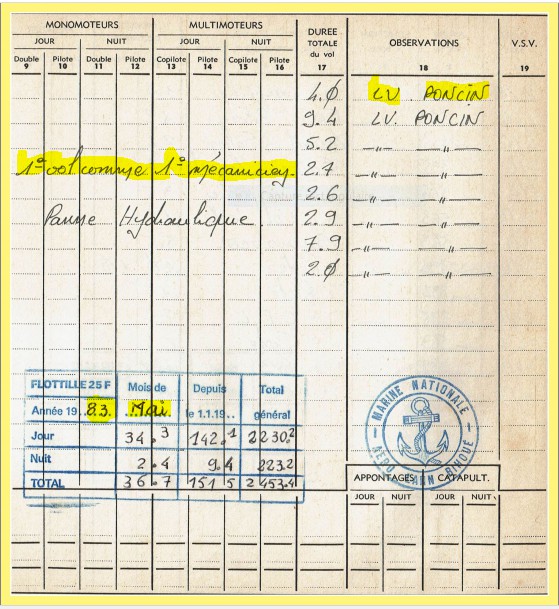 MONOMOTEURS MULTIMOTEURS DUREE TOTALE du vol OBSERVATIONS V.S.V.
JOUR NUIT JOUR NUIT
Double Pilote Double Pilote Copilote Pilote Copilote Pilote
9 10 11 12 13 14 15 16 17 18 19
4.0 LV. PONCIN
9.4 LV. PONCIN
5.2 —"— —"—
1° vol comme 1° mécanicien. 2.7 —"— —"—
2.6 —"— —"—
Panne Hydraulique. 2.9 —"— —"—
7.9 —"— —"—
2.0 —"— —"—
FLOTTILLE 25 F Mois de Depuis Total
Année 19..83. Mai. le 1.1.19.. général
Jour 34.3 142.1 2230.2
Nuit 2.4 9.4 223.2
TOTAL 36.7 151 5 2 453.4
MARINE NATIONALE
AERO LANN BIHOUE
APPONTAGES CATAPULT.
JOUR NUIT JOUR NUIT